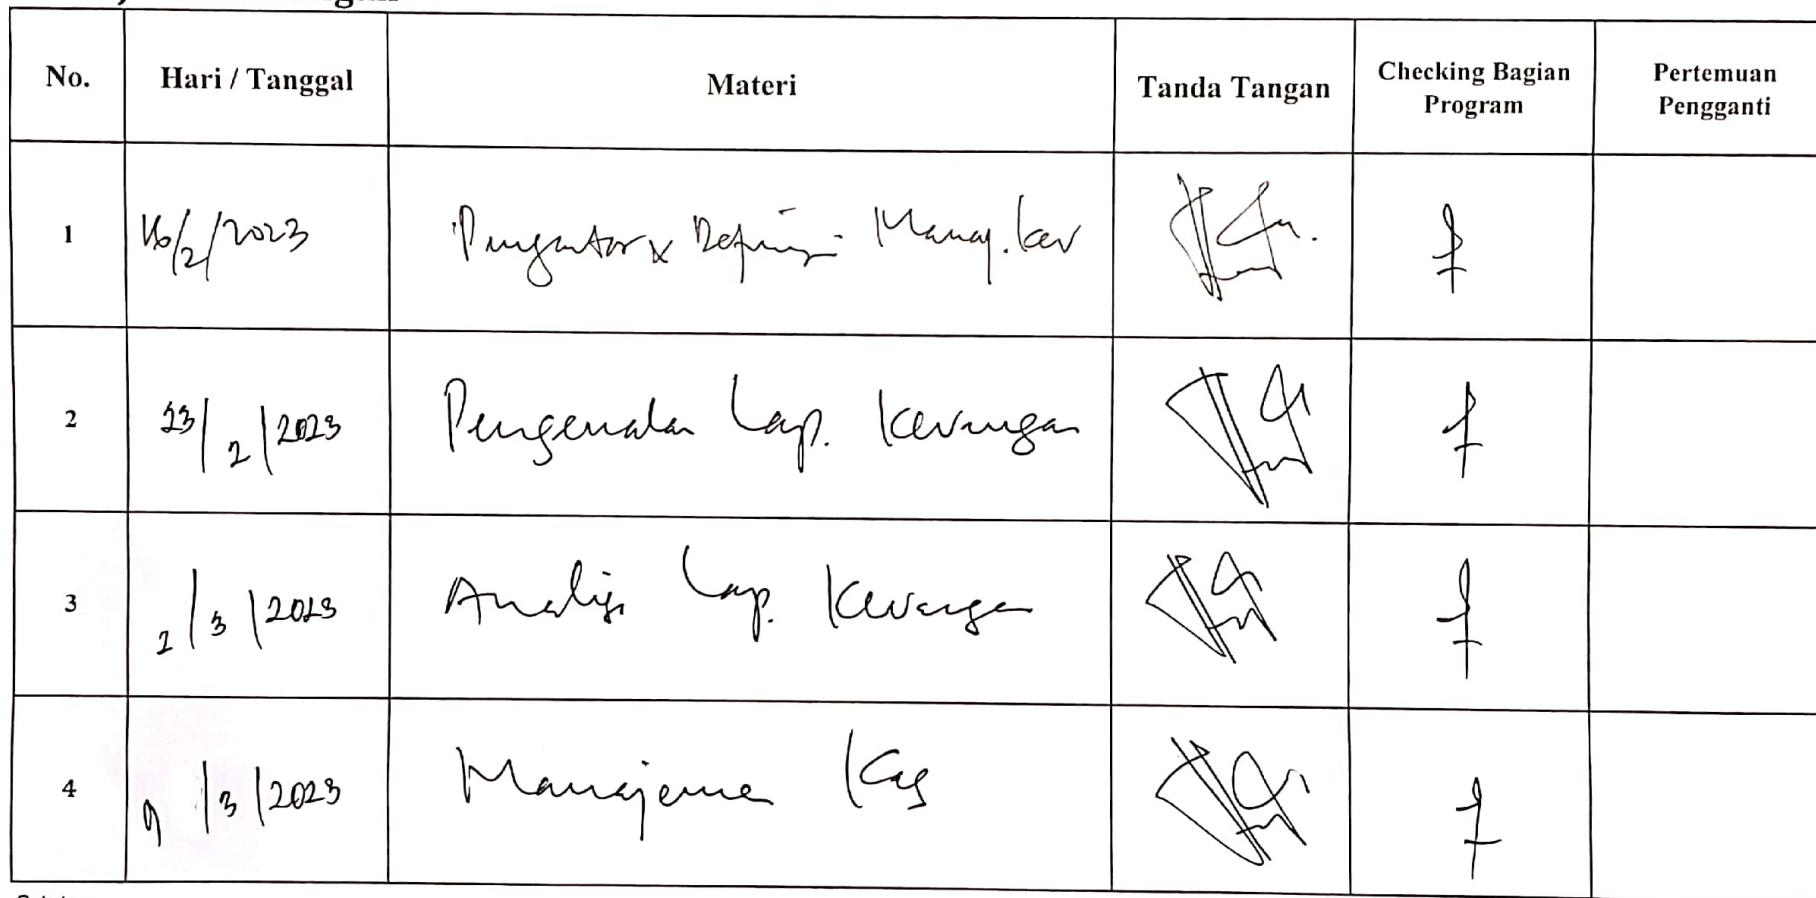 No. Hari / Tanggal Materi Tanda Tangan Checking Bagian Program Pertemuan Pengganti
1 16/2/2023 Pengantar & Definisi Manaj. keu
2 23/2/2023 Pengenalan Lap. Keuangan
3 2/3/2023 Analisis Lap. Keuangan
4 9/3/2023 Manajemen Kas